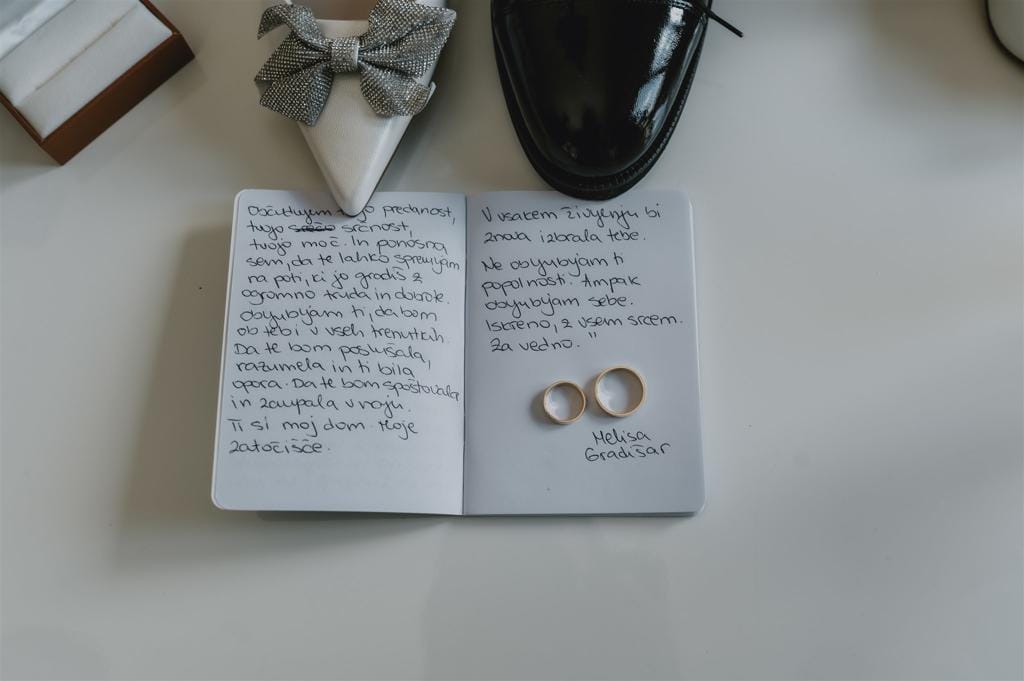 Občudujem tvojo predanost,
tvojo srčnost,
tvojo moč. In ponosna
sem, da te lahko spremljam
na poti, ki jo gradiš z
ogromno truda in dobrote.
Obljubljam ti, da bom
ob tebi v vseh trenutkih.
Da te bom poslušala,
razumela in ti bila
opora. Da te bom spoštovala
in zaupala v naju.
Ti si moj dom. Moje
zatočišče.
V vsakem življenju bi
znova izbrala tebe.
Ne obljubljam ti
popolnosti. Ampak
obljubljam sebe.
Iskreno, z vsem srcem.
Za vedno."
Melisa
Gradišar